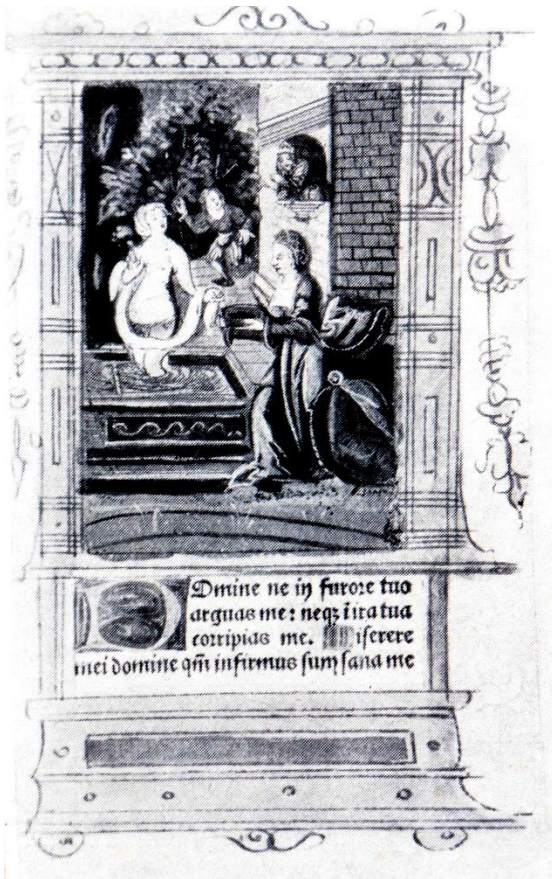 Domine ne in furore tuo
arguas me: neqȝ i ira tua
corripias me. Miserere
mei domine qm̄ infirmus sum sana me